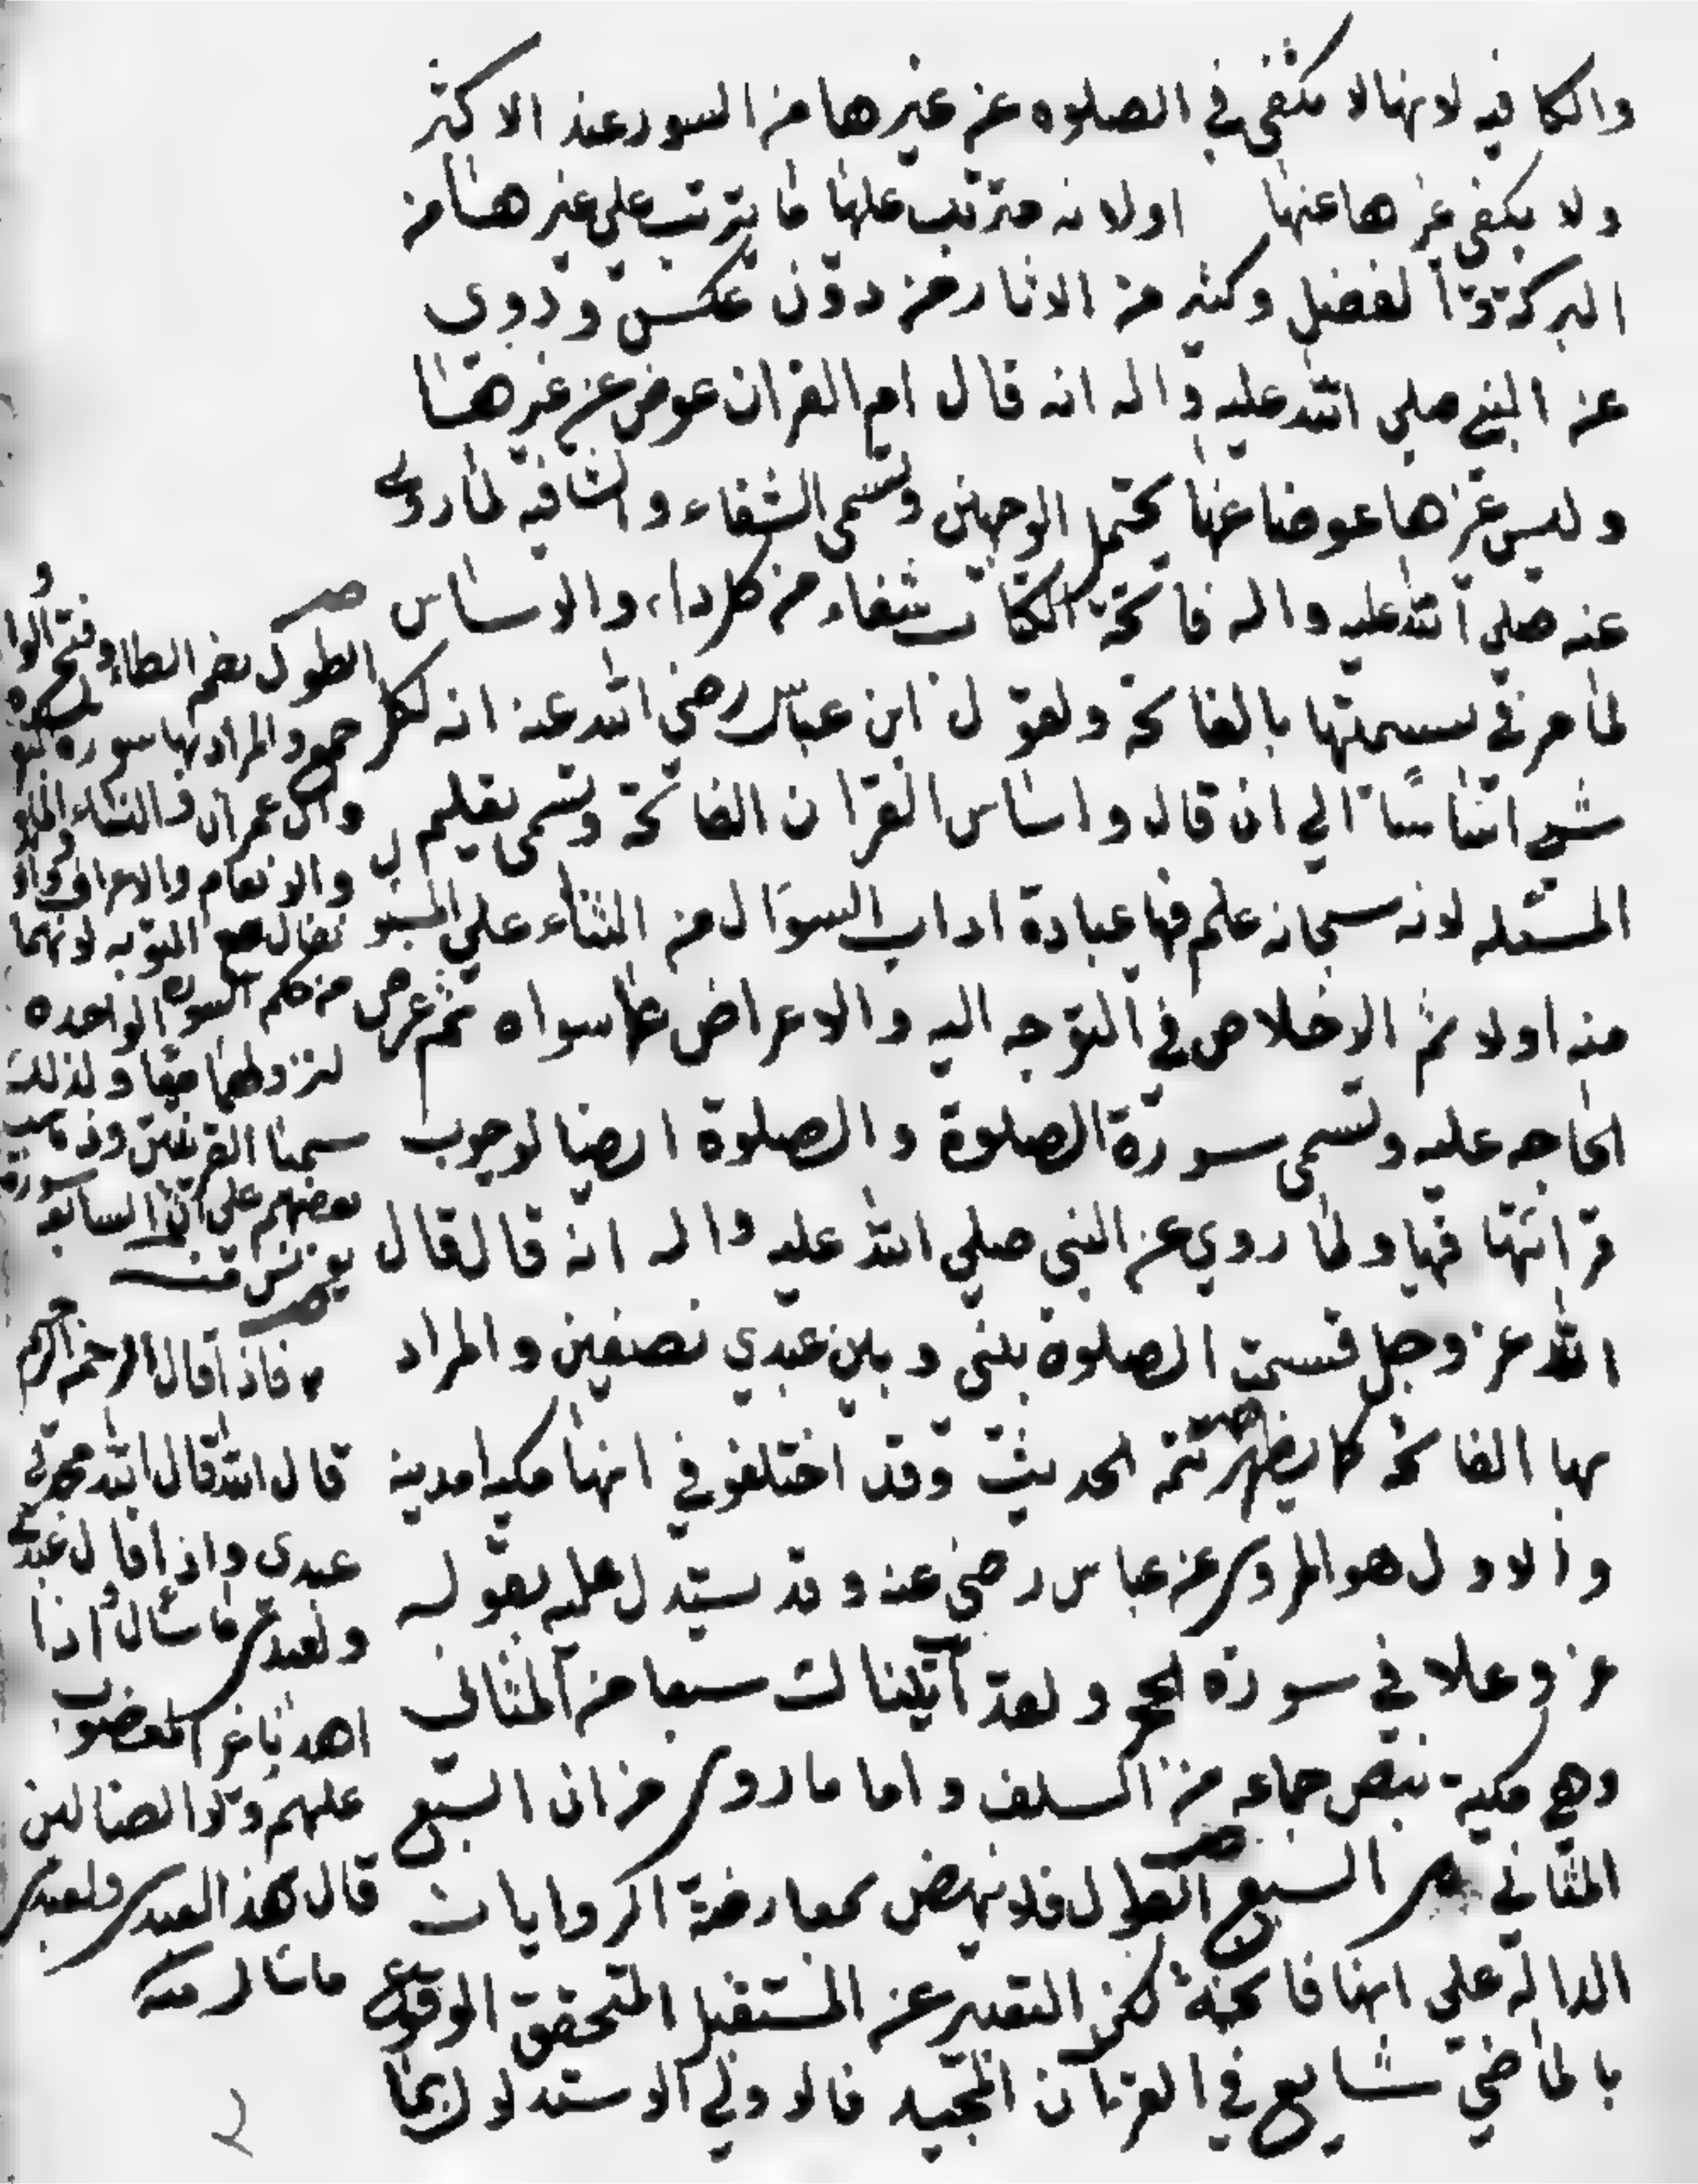 والكافيه لانها لا تكتفى في الصلوه عن غيرها من السور عند الاكثر
ولا يكفى غيرها عنها اولانه مترتب علها ما يترتب على غيرها من
البركة وا لفضل وكثير من الاثار من دون عكس و روى
عن النبي صلى الله عليه واله انه قال ام القران عوض عن غيرها
وليس غيرها عوضا عنها يحتمل الوجهين وتسمى الشفاء والشافيه لما روى
عنه صلى الله عليه واله فاتحة الكتاب شفاء من كل داء والاساس
لما مر في تسميتها بالفاتحة ولقول ابن عباس رضي الله عنه انه لكل
شي اساسا الي ان قال واساس القران الفاتحة وتسمى تعليم
المسئله لانه سبحانه علم فيها عباده اداب السوال من الثناء على المسئول
منه اولا ثم الاخلاص في التوجه اليه والاعراض عما سواه ثم عرض
الحاجه عليه وتسمى سورة الصلوة والصلوة ايضا لوجوب
قرائتها فيها ولما روي عن النبي صلي الله عليه واله انه قال قال
الله عز وجل قسمت الصلوة بيني وبين عبدي نصفين والمراد
بها الفاتحة كما يظهر تتمة الحديث وقد اختلفو في انها مكيه امدينه
والاول هو المروي عن عباس رضي عنه وقد يستدل عليه بقوله
عز وعلا في سورة الحجر ولقد آتيناك سبعا من المثاني
وهي مكية بنص جماعه من السلف واما ما روى من ان السبع
المثاني هي السبع الطول فلا ينهض لمعارضة الروايات
الدالة على انها فاتحة لكن التعبير عن المستقبل المتحقق الوقوع
بالماضي شايع في القران المجيد فالاولي الاستدلال بما
الطول بضم الطاء وفتح الوا و
جمع والمراد بها سوره البقره
وال عمران والنساء والمائده
والانعام والاعراف والانفال مع التوبه لانهما
من حكم السوره الواحده
لنزولهما معا ولذلك
سميتا القرينتين وذهب
بعضهم على ان السابعه سورة
يونس منه
فاذا قال الرحمن الرحيم
قال الله قال الله مجدني
عبدى واذا قال عبدي
ولعبدى ما سال اذا
اهدنا غير المغضوب
عليهم ولا الضالين
قال هذا لعبدى ولعبدى
ما سال منه